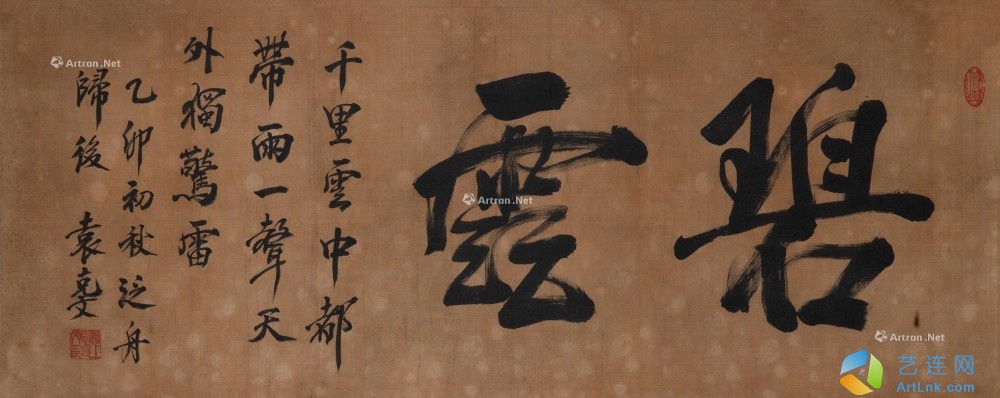 碧雲
千里雲中都
帶雨一聲天
外獨驚雷
乙卯初秋泛舟
歸後 袁克文
Artron.Net
Artron.Net
Artron.Net
艺连网
ArtLnk.com